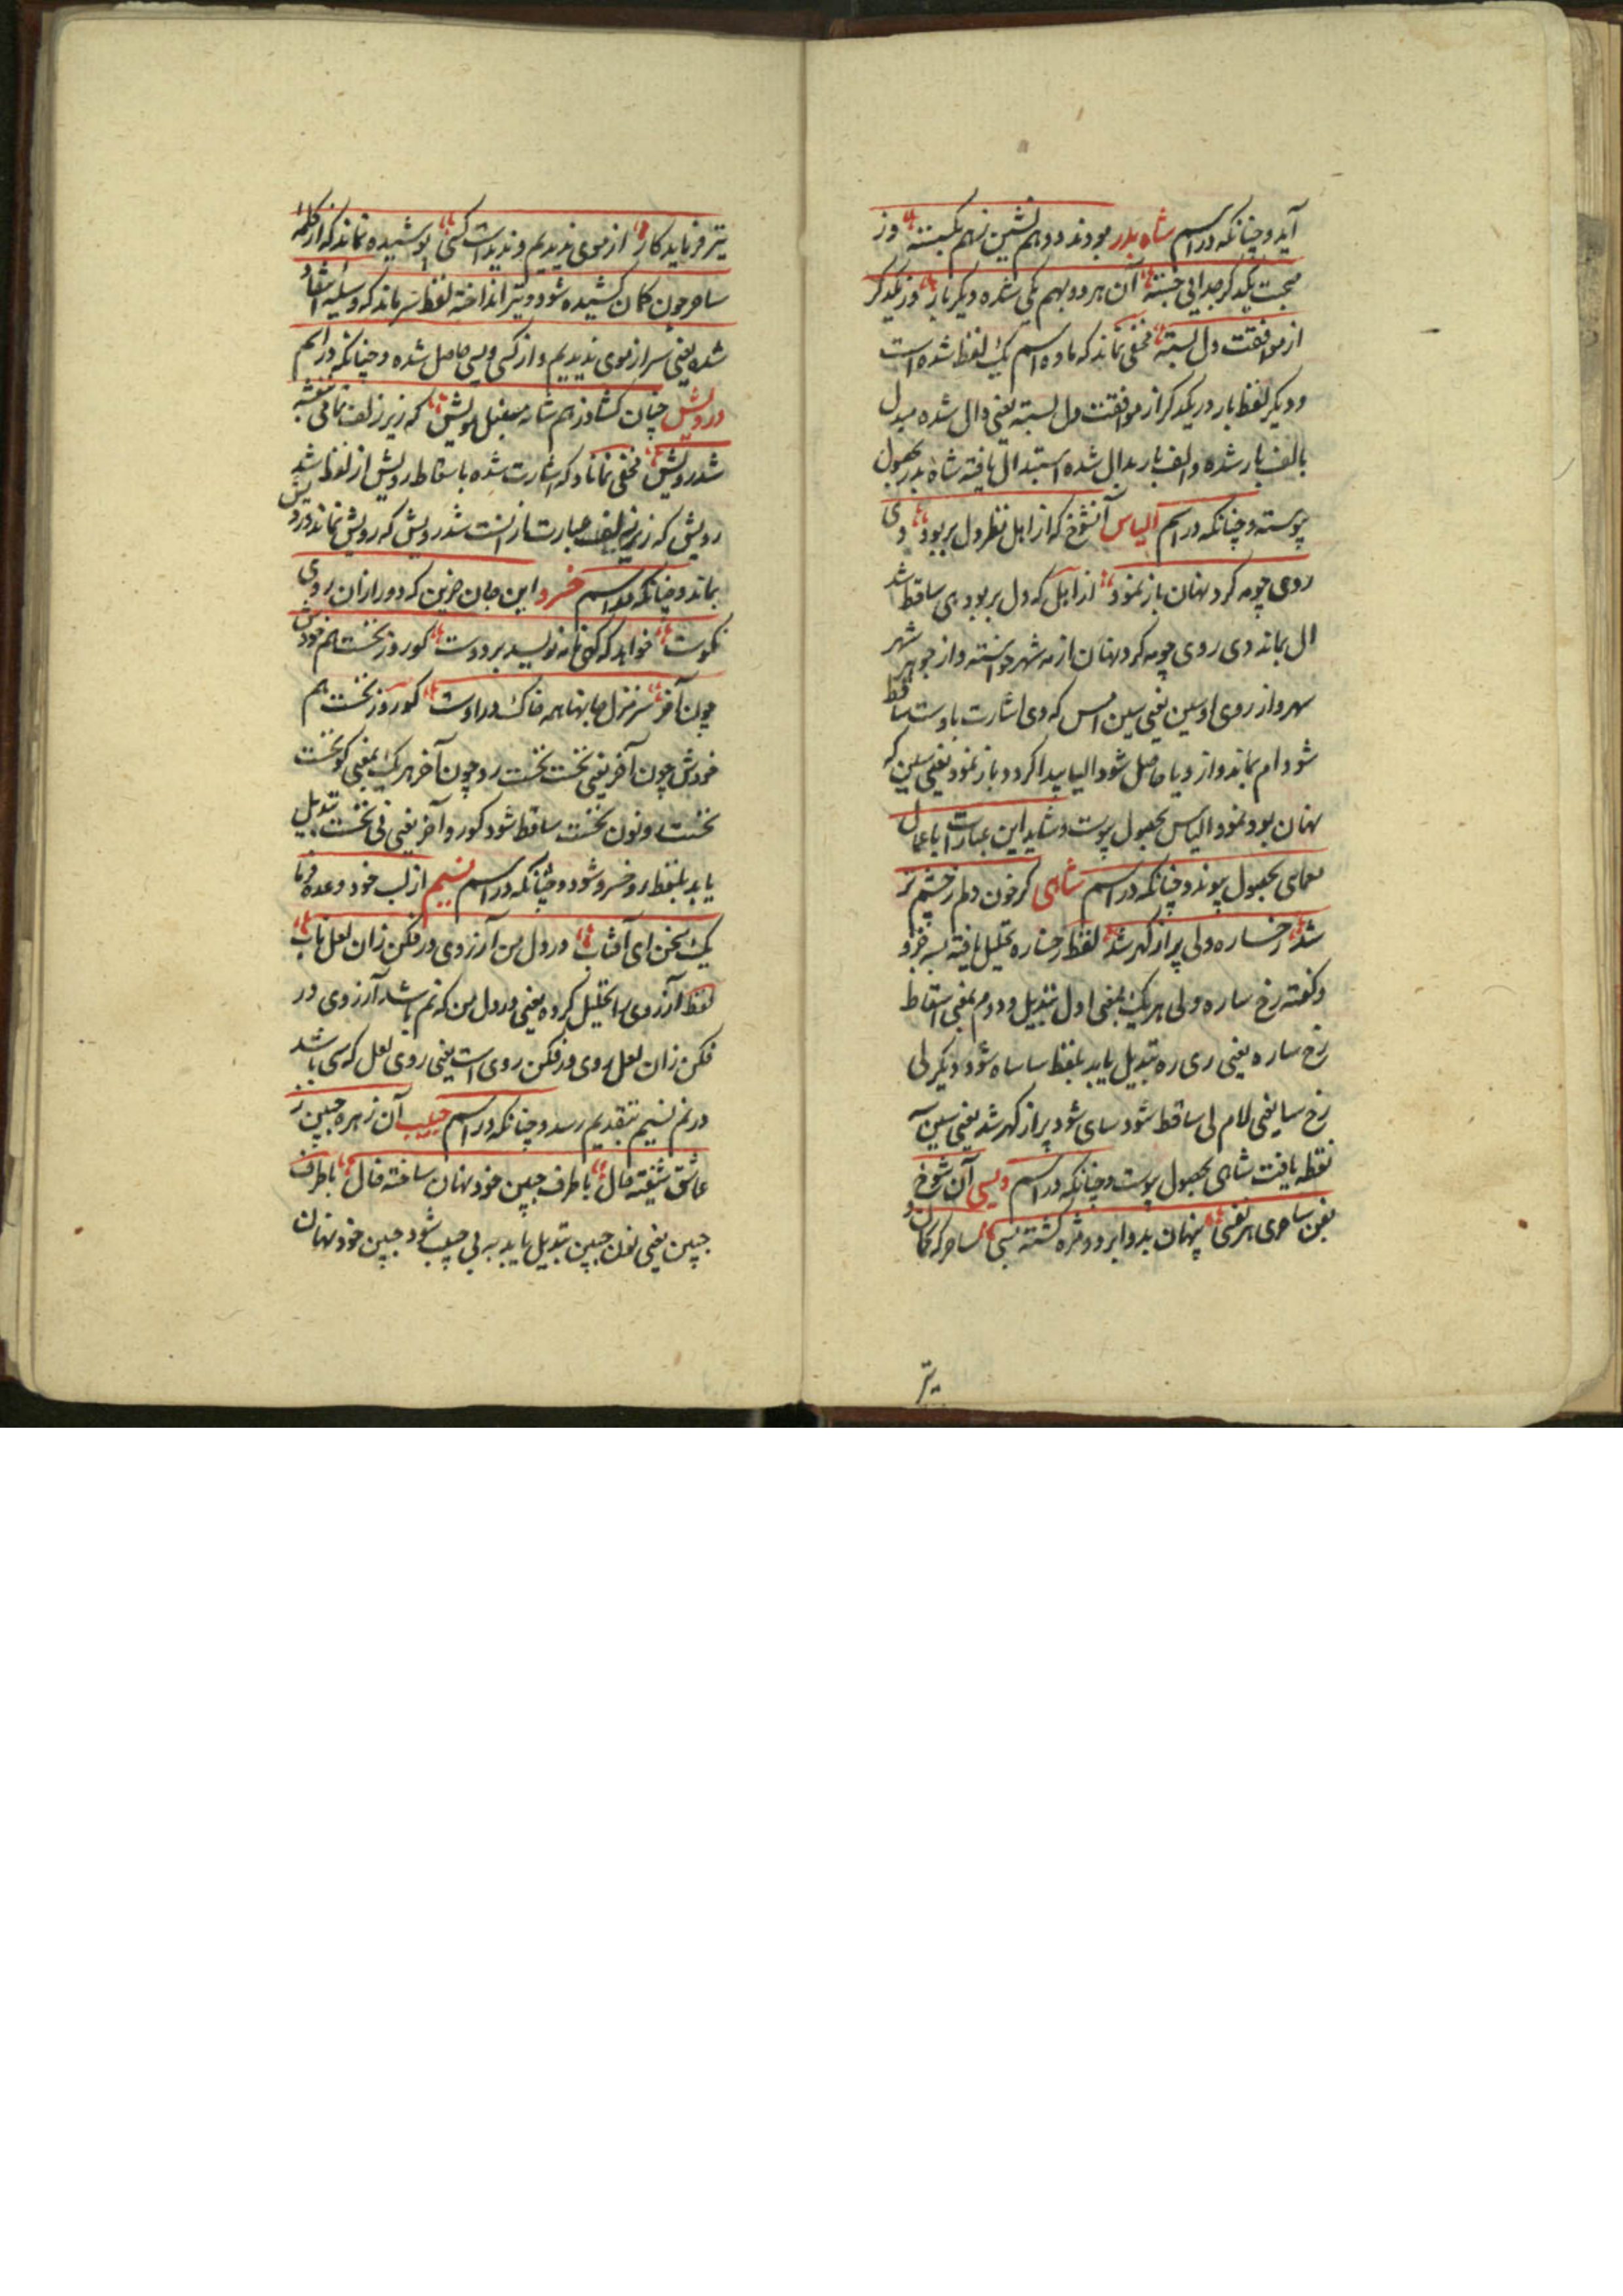 آید و چنانکه در اسم شاه بدر بودند دو هم نشین بهم بکینه وز
صحبت یکدگر جدایی جسته آن هر دو بهم یکی شده دیگر بار وز یکدگر
از موافقت دل بسته مخفی نماند که ماده اسم یک لفظ شده است
و دیگر لفظ بار در یکدگر از موافقت دل بسته یعنی دال شده مبدل
بالف بار شده و الف بار بدال شده استبدال یافته شاه بدر بحصول
پیوسته و چنانکه در اسم الیاس آنشوخ که از اهل نظر دل بربود وی
روی چو مه کرد نهان باز نمود از اهل که دل بربود های ساقط شد
ال بماند وی روی چو مه کرد نهان از مه شهر خواسته و از جوهر شهر
سهر و از روی او سین یعنی سین امس که دی اشارت باوست ساقط
شود ام بماند و از و یا حاصل شود الیا پیدا کرد و باز نمود یعنی سین که
نهان بود نمود الیاس بحصول پیوست و شاید این عبارت با عمال
معمای بحصول پیوندد و چنانکه در اسم شاهی کر خون دلم ز چشم تر
شد رخساره ولی پر از گهر شد لفظ رخساره تحلیل یافته بسه جزو
و گفته رخ ساره ولی هر یک بمعنی اول تبدیل و دوم بمعنی اسقاط
رخ ساره یعنی ری ره تبدیل یابد بلفظ سا ساه شود دیگر لی
رخ سا یعنی لام لی ساقط شود سای شود پر از گهر شد یعنی سین سه
نقطه یافت شاهی بحصول پیوست و چنانکه در اسم ویسی آن شوخ
بفن ساحری هر نفسی پنهان بدو ابرو و مژه کشته بسی ساحر که کمان و
تیر
تیر فرماید کار از موی ندیدیم و ندیدست کسی پوشیده نماند که از کلمه
ساحر چون کمان کشیده شود و تیر انداخته لفظ سر ماند که وسیله اسقاط
شده یعنی سر از موی ندیدیم و از کسی ویسی حاصل شده و چنانکه در اسم
درویش چنان کشاد ز هم شانه سنبل مویش که زیر زلف تمامی بنفشه
شد رویش مخفی نماناد که اشارت شده باسقاط رویش از لفظ شد
رویش که زیر زلف عبارت از انست شد رویش که رویش نماند درویش
بماند و چنانکه در اسم خسرو این جان حزین که دور از ان روی
نکوست خواهد که کهی نامه نویسد بر دوست کو روز نخست هم خودش
چون آخر سر منزل جانها همه خاک در اوست کو روز نخست هم
خودش چون آخر یعنی نخست نخست رو چون آخر هر یک بمعنی کو نخست
نخست رو نون نخست ساقط شود کو رو آخر یعنی فی نخست تبدیل
یابد بلفظ رو خسرو شود و چنانکه در اسم نسیم از لب خود وعده فرما
یک سخن ای آفتاب در دل من آرزوی در فکن زان لعل ناب
لفظ آرزوی را تحلیل کرده یعنی در دل من که نم باشد آرزوی در
فکن زان لعل روی در فکن روی است یعنی روی لعل که سی باشد
در نم نسیم بتقدیم رسد و چنانکه در اسم حبیب آن زهره جبین ز
عاشق شیفته حال با طرف جبین خود نهان ساخته خال با طرف
جبین یعنی نون جبین تبدیل یابد به بی جبیب شود جبین خود نهان